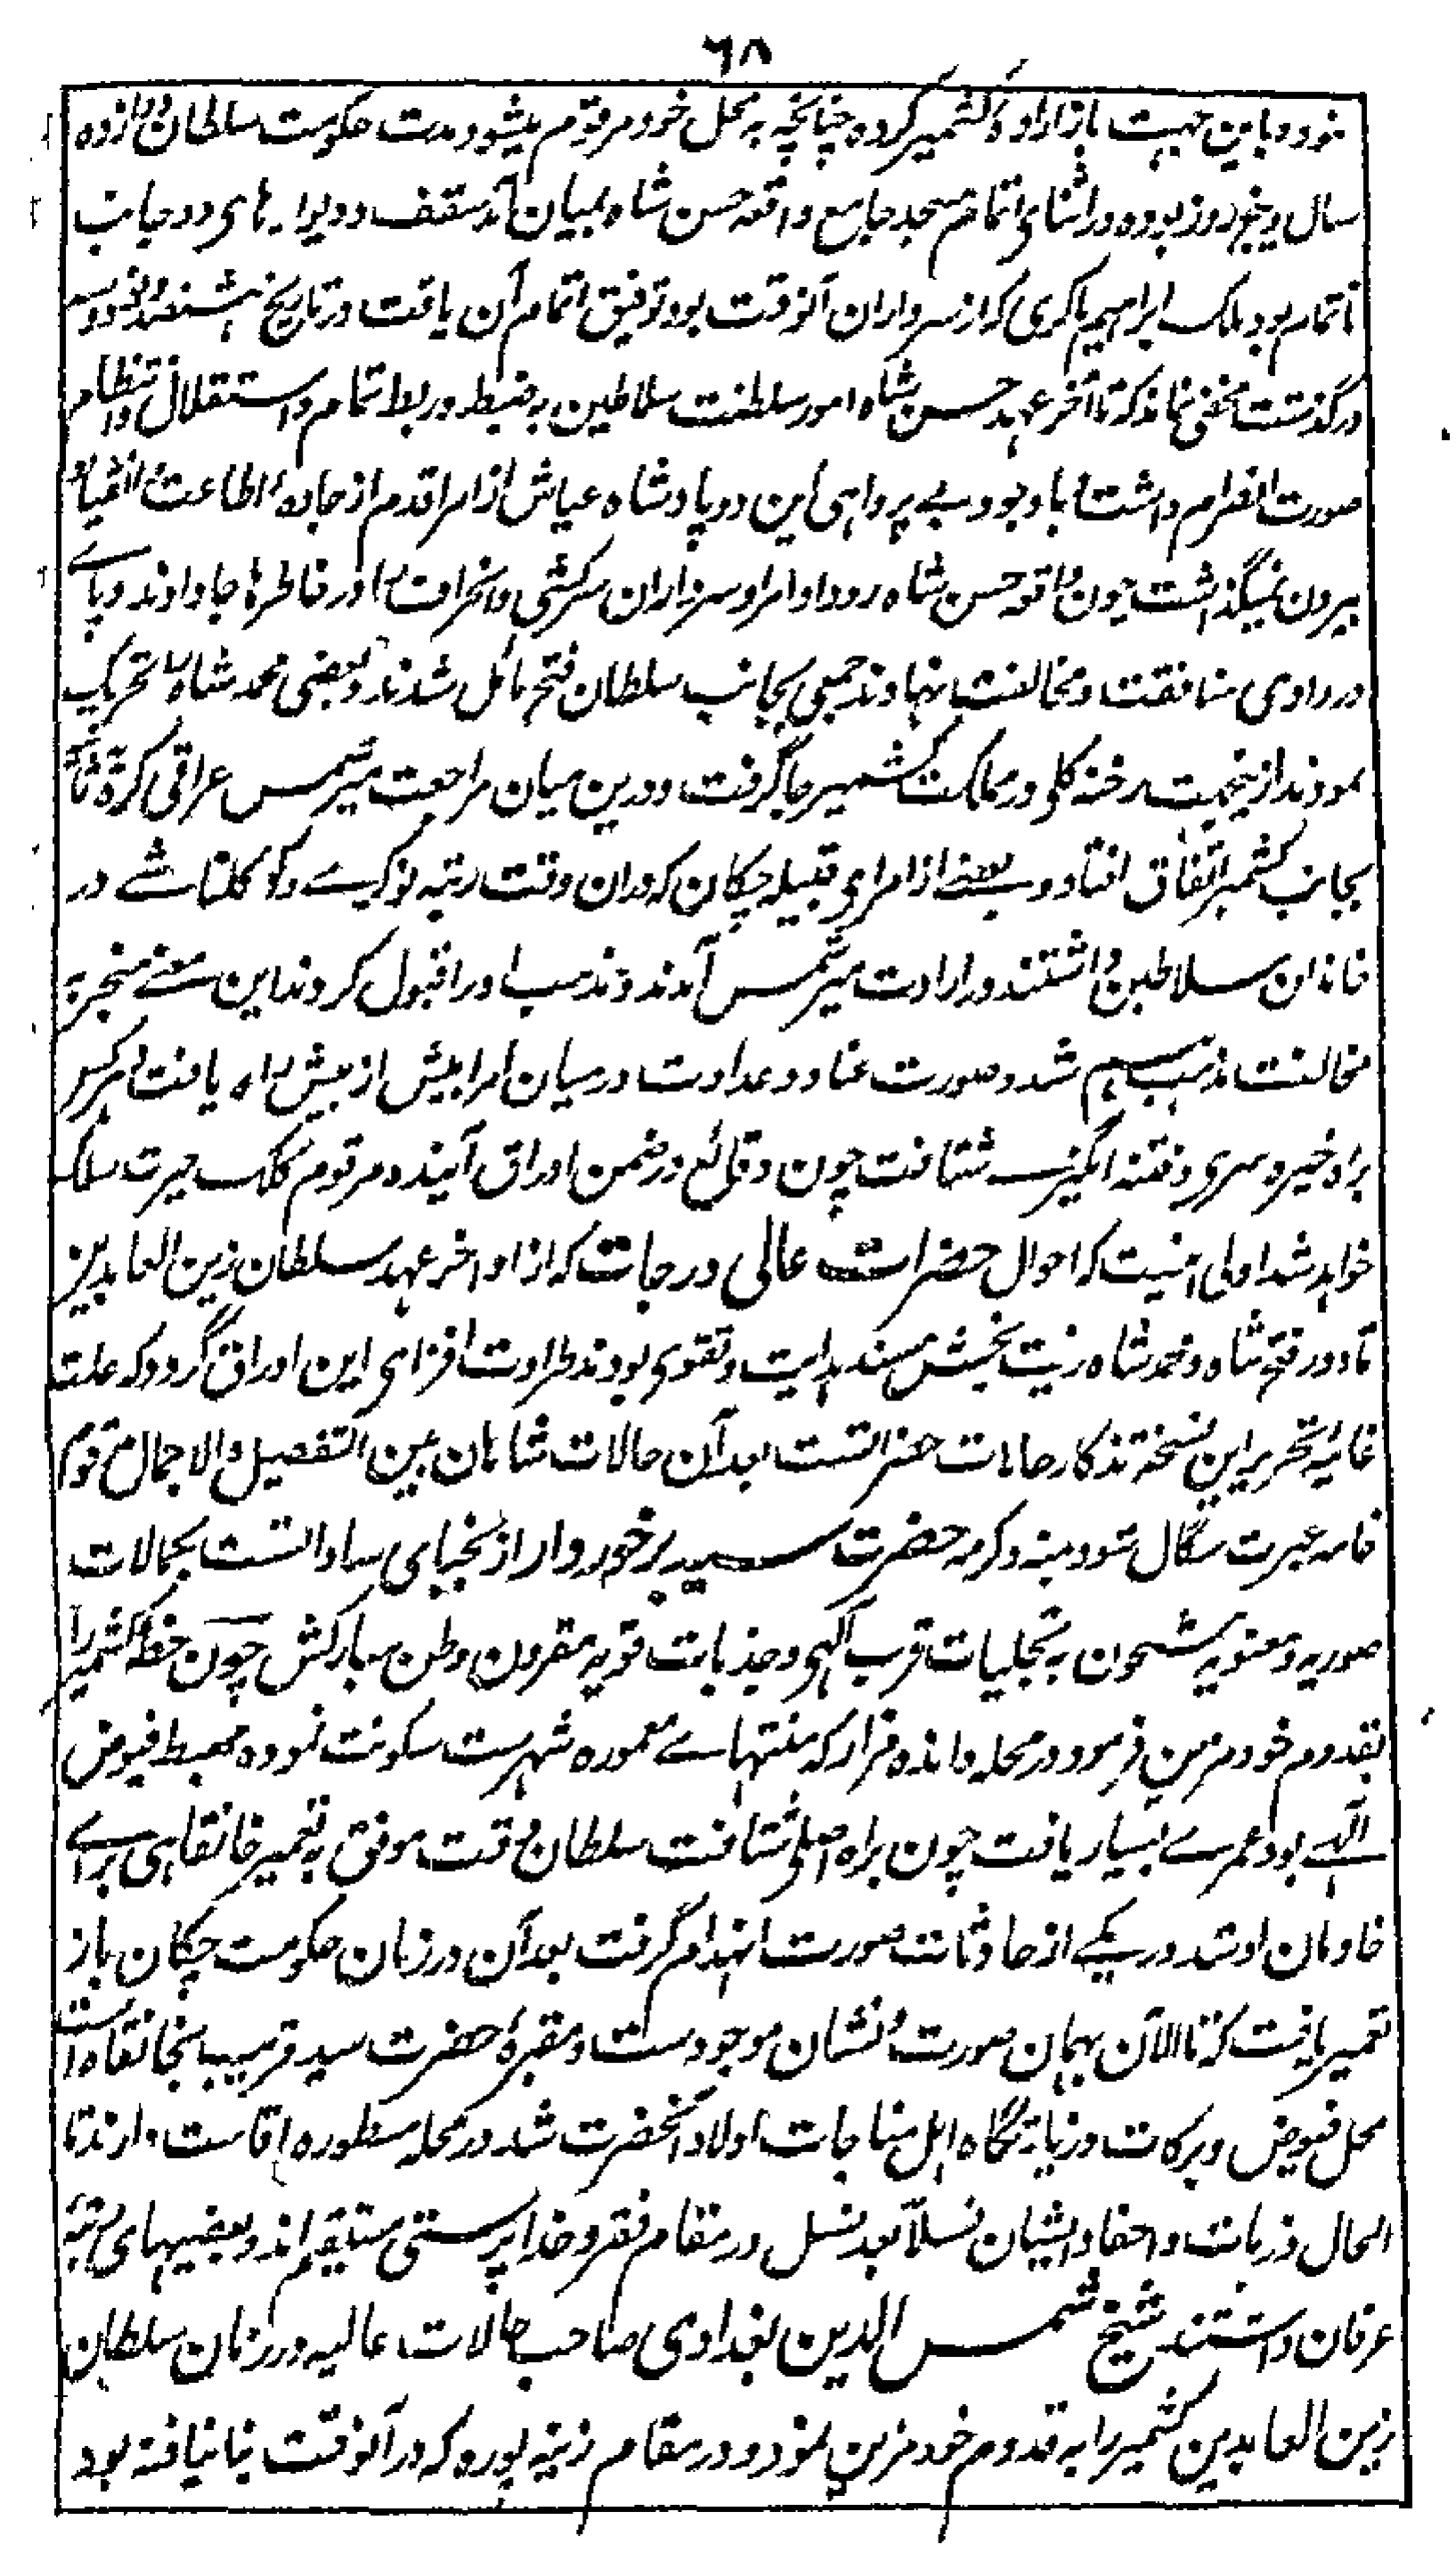 ٦٨
نمود و باین جهت باز اراده کشمیر کرده چنانچه به محل خود مرقوم میشود مدت حکومت سلطان دوازده
سال و پنج روز بوده در اثنای اتمام مسجد جامع واقعه حسن شاه بمیان آمد سقف و دیوارهای دو جانب
ناتمام بود ملک ابراهیم ماکری که از سرداران آنوقت بود توفیق اتمام آن یافت و در تاریخ هشتصد و نود و سه
درگذشت مخفی نماند که تا آخر عهد حسن شاه امور سلطنت سلاطین به ضبط و ربط تمام و استقلال و انتظام
صورت انصرام داشت باوجود بے پرواهی این دو پادشاه عیاش از امرا قدم از جاده اطاعت و انقیاد
بیرون نمیگذاشت چون واقعه حسن شاه رو داد امرا و سرداران سرکشی و انحراف را در خاطرها جا دادند و پاے
در وادی منافقت و مخالفت نهادند جمعی بجانب سلطان فتح مائل شدند و بعضی محمد شاه را تحریک
نمودند ازینجهت رخنه کلی در مملکت کشمیر جا گرفت و درین میان مراجعت میر شمس عراقی کرة ثانیة
بجانب کشمیر اتفاق افتاد و بعضے از امرای قبیله چکان که دران وقت رتبه نوکرے و کوکلتاشے در
خاندان سلاطین داشتند در ارادت میر شمس آمدند و مذهب او را قبول کردند این معنے منجر به
مخالفت مذهب هم شد و صورت عناد و عداوت در میان امرا بیش از بیش راه یافت و هر کس
براه خیره سری و فتنه انگیزے شتافت چون وقائع در ضمن اوراق آینده مرقوم کلک حیرت سلک
خواهد شد اولی اینست که احوال حضرات عالی درجات که از اواخر عهد سلطان زین العابدین
تا دور فتح شاه و محمد شاه زینت بخش مسند هدایت و تقوی بودند طراوت افزای این اوراق گردد که علت
غائیه تحریر این نسخه تذکار حالات حضراتست بعد آن حالات شاهان بین التفصیل والاجمال مرقوم
خامه عبرت سگال شود بمنه و کرمه حضرت سید برخوردار از نجبای ساداتست بکمالات
صوریه و معنویه مشحون به تجلیات قرب الهی و جذبات قویه مقرون وطن مبارکش چون خطه کشمیر را
بقدوم خود مزین فرمود در محله مانده فرار که منتهاے معموره شهرست سکونت نموده مهبط فیوض
الهے بود عمرے بسیار یافت چون براه اصلی شتافت سلطان وقت موفق به تعمیر خانقاهی براے
خادمان او شد در یکے از حادثات صورت انهدام گرفت بعد آن در زمان حکومت چکان باز
تعمیر یافت که تا الآن بهمان صورت و نشان موجودست و مقبره حضرت سید قریب بخانقاه است
محل فیوض و برکات و زیارتگاه اهل مناجات اولاد آنحضرت شد در محله مسطوره اقامت دارند تا
الحال ذریات و احفاد ایشان نسلاً بعد نسل در مقام فقر و خدا پرستی مستقیم اند و بعضیهای مرتبه
عرفان داشتند شیخ شمس الدین بغدادی صاحب حالات عالیه در زمان سلطان
زین العابدین کشمیر را به قدوم خود مزین نمود و در مقام زینه پوره که در آنوقت بنا نیافته بود